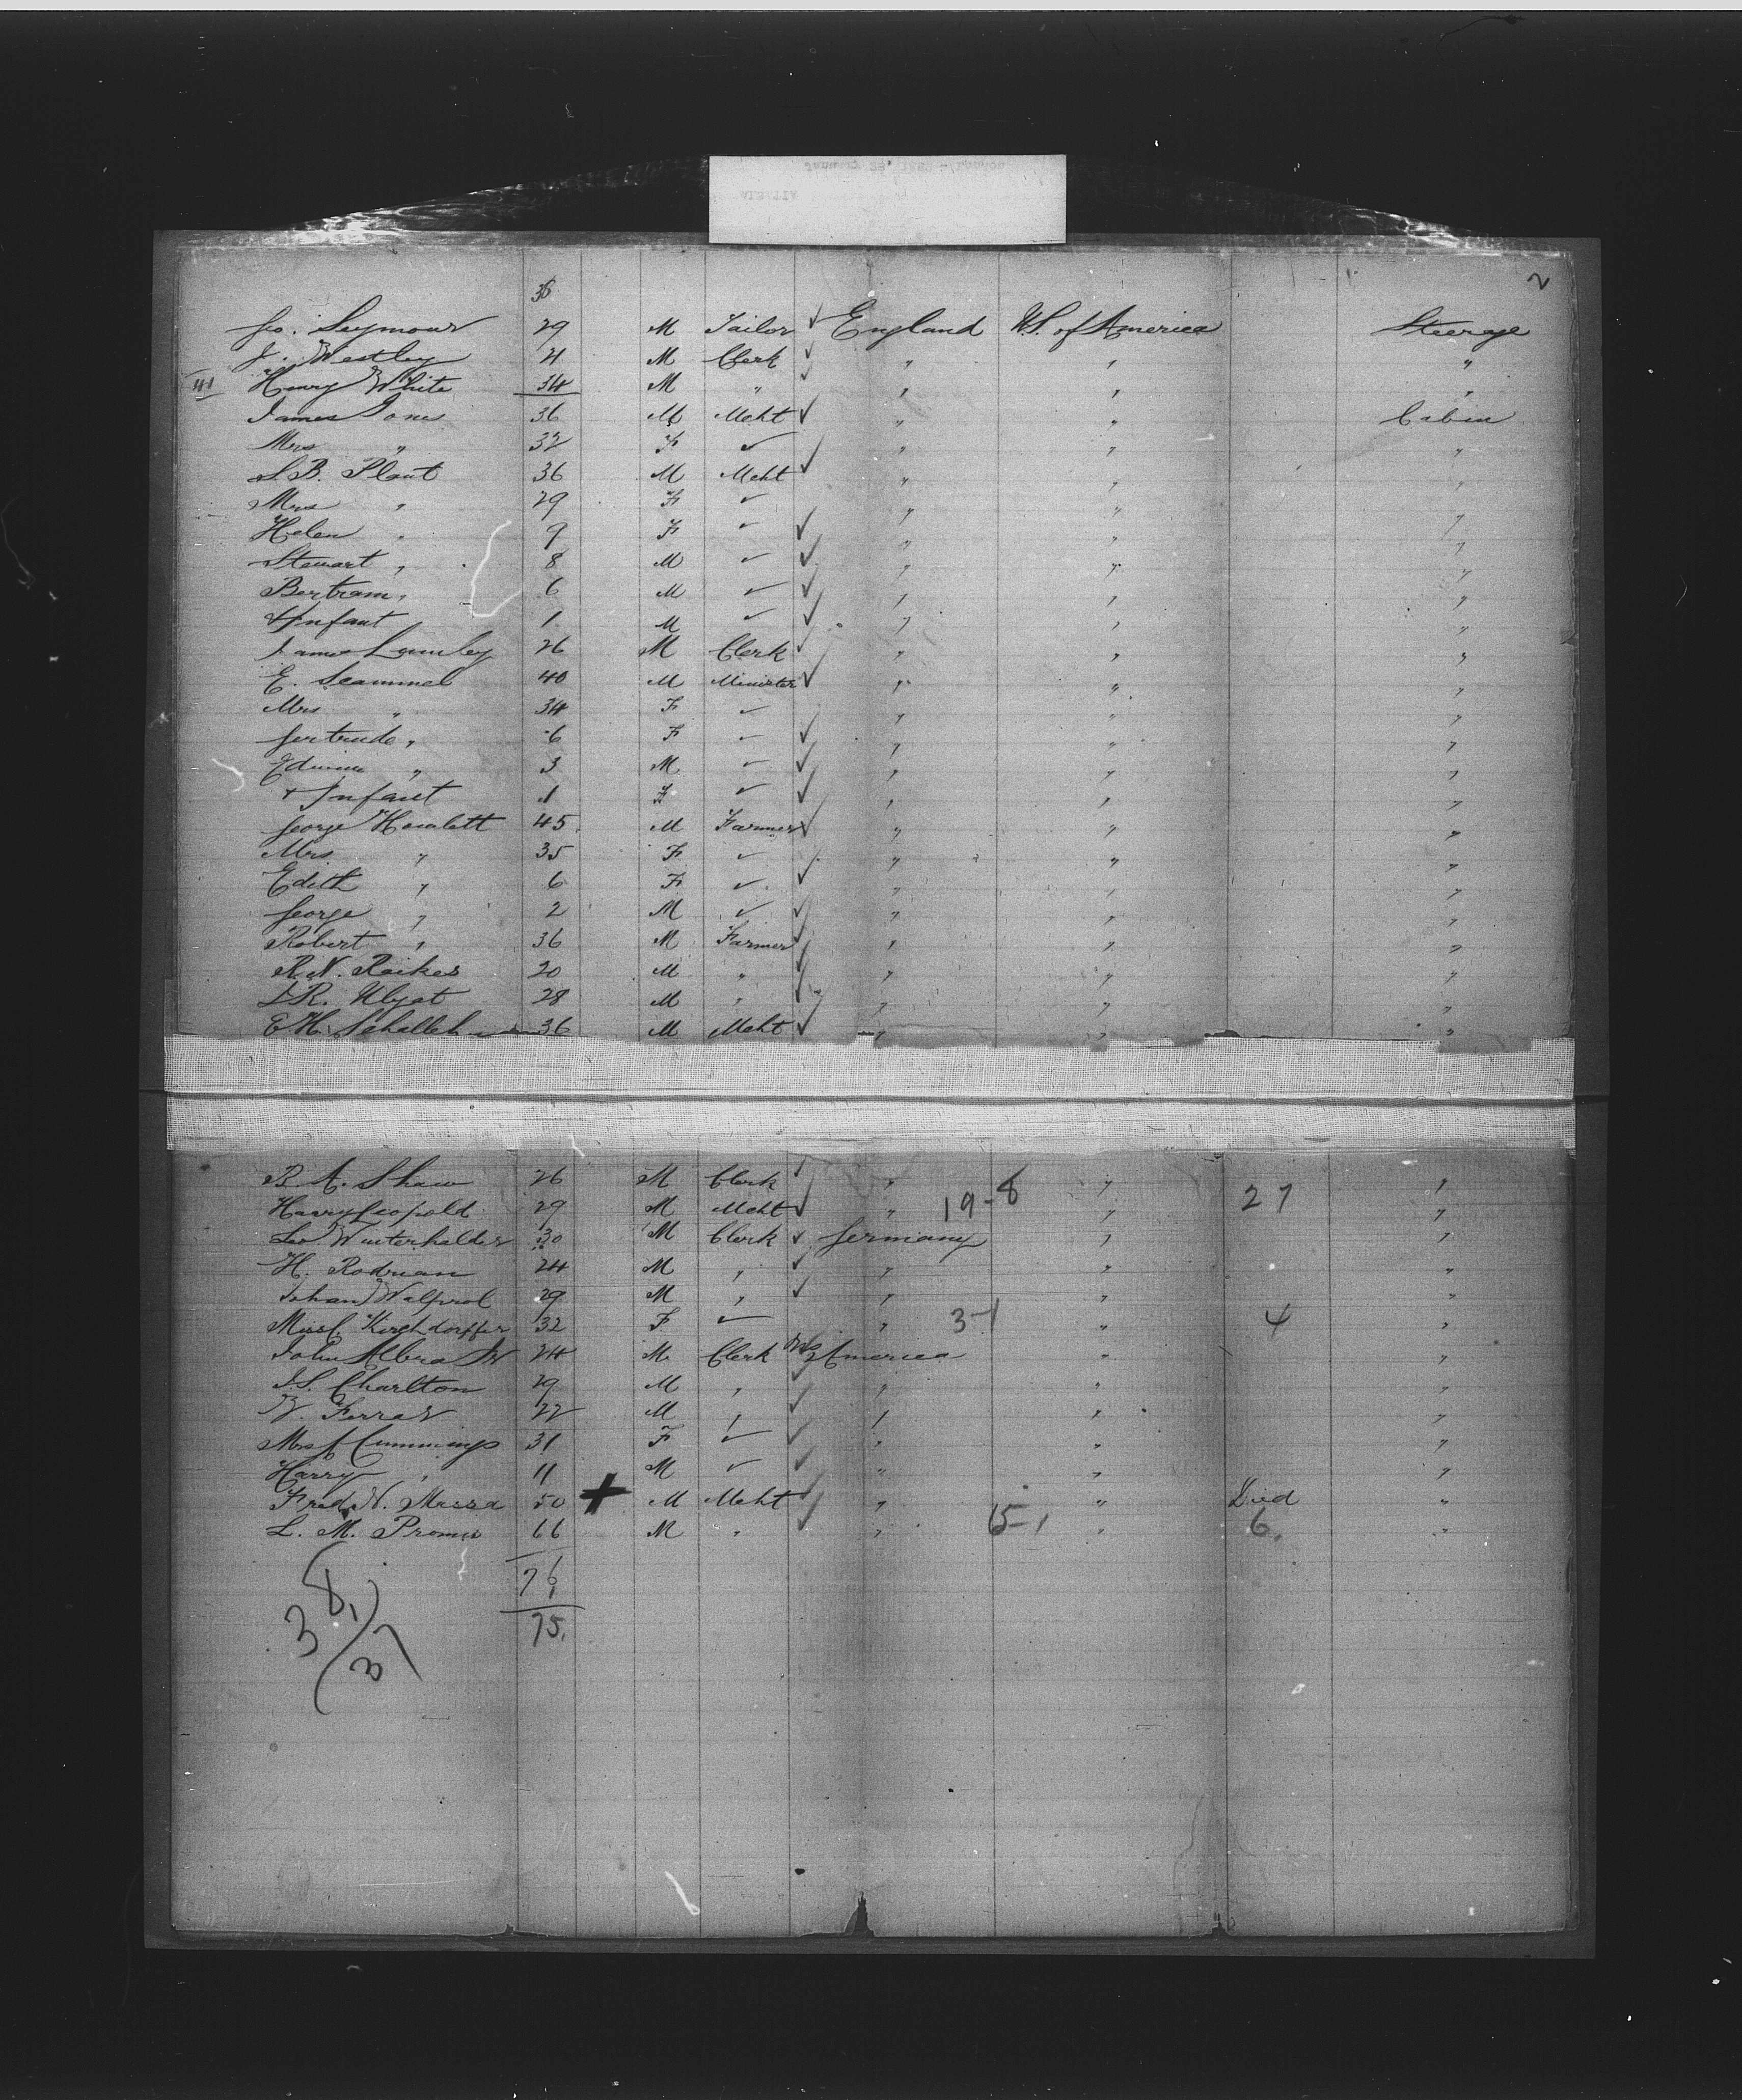 2
36
Geo. Seymour 29 M Tailor ✓ England U.S. of America Steerage
J. Westley 21 M Clerk ✓ " " "
41 Henry White 34 M " ✓ " " "
James Jones 36 M Mcht ✓ " " Cabin
Mrs " 32 F ✓ " " "
S. B. Plant 36 M Mcht ✓ " " "
Mrs " 29 F ✓ " " "
Helen " 9 F ✓ ✓ " " "
Stewart " 8 M ✓ ✓ " " "
Bertram " 6 M ✓ ✓ " " "
& Infant 1 M ✓ ✓ " " "
James Lumley 26 M Clerk ✓ " " "
E. Scammel 40 M Minister ✓ " " "
Mrs " 34 F ✓ " " "
Gertrude " 6 F ✓ ✓ " " "
Edwin " 3 M ✓ ✓ " " "
& Infant 1 F ✓ ✓ " " "
George Howlett 45 M Farmer ✓ " " "
Mrs " 35 F ✓ " " "
Edith " 6 F ✓ ✓ " " "
George " 2 M ✓ ✓ " " "
Robert " 36 M Farmer ✓ " " "
R. N. Raikes 20 M " ✓ " " "
28 M " ✓ " " "
E. H. 36 M Mcht ✓ " " "
R. A. Shaw 26 M Clerk ✓ " " "
Harry Leopold 29 M Mcht ✓ " 19-8 " 27 "
Leo Winterhalder 30 M Clerk ✓ Germany " "
H. Rodman 24 M " ✓ " " "
Johan 29 M " ✓ " " "
Miss C. Kirchdorffer 32 F ✓ " 3-1 " 4 "
John 24 M Clerk America " "
J. S. Charlton 29 M " ✓ " " "
Ferrar 22 M " ✓ " " "
Mrs Cummings 31 F ✓ ✓ " " "
Harry " 11 M ✓ ✓ " " "
Fred N. Massa 50 + M Mcht ✓ " " Died "
L. M. 66 M " ✓ " 5-1 " 6 "
76
1
75
38
1
37